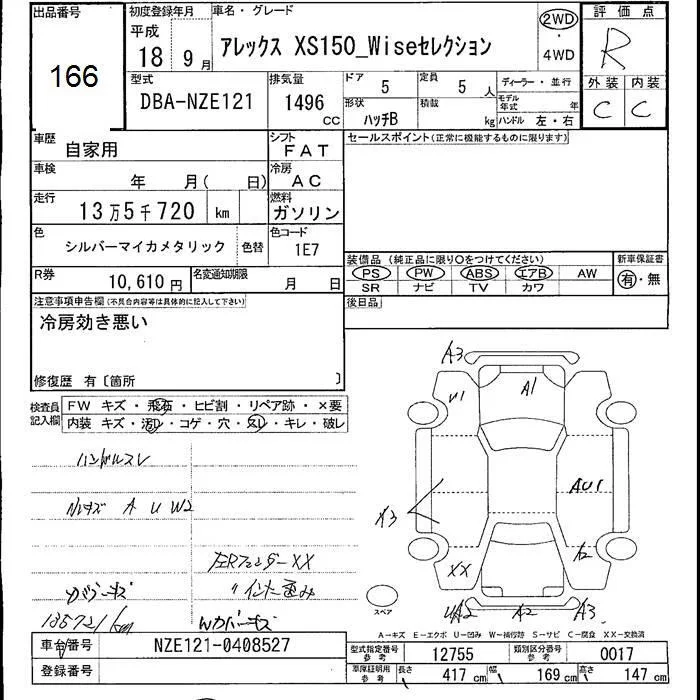 出品番号
166
初度登録年月
平成
18 9 月
車名・グレード
アレックス XS150_Wiseセレクション
2WD
・
4WD
評価点
R
外装 内装
C C
型式
DBA-NZE121
排気量
1496
CC
ドア
5
定員
5 人
形状
ハッチB
積載
kg
ディーラー・並行
モデル年式 年
ハンドル 左・右
車歴
自家用
シフト
FAT
車検
年 月( 日)
冷房
AC
走行
13万5千720 km
燃料
ガソリン
色
シルバーマイカメタリック
色替
色コード
1E7
R券
10,610 円
名変通知期限
月 日
セールスポイント(正常に機能するものに限ります)
装備品 (純正品に限り○をつけてください)
PS PW ABS エアB AW
SR ナビ TV カワ
新車保証書
有・無
後日品
注意事項申告欄(不具合内容等は具体的に記入して下さい)
冷房効き悪い
修復歴 有〔箇所 〕
検査員記入欄
FW キズ・飛石・ヒビ割・リペア跡・×要
内装 キズ・汚レ・コゲ・穴・欠レ・キレ・破レ
ハンドルスレ
ルーキズ A U W2
左Rフェンダー XX
〃インナー歪み
ガラスキズ
135721km
Wカバーキズ
A3
U1
A1
A3
AU1
XX
A2
UA2
A2
A3
スペア
A-キズ E-エクボ U-凹み W-補修跡 S-サビ C-腐食 XX-交換済
車台番号
NZE121-0408527
登録番号
型式指定番号
参考
12755
類別区分番号
参考
0017
車庫証明用
参考
長さ
417 cm
幅
169 cm
高さ
147 cm